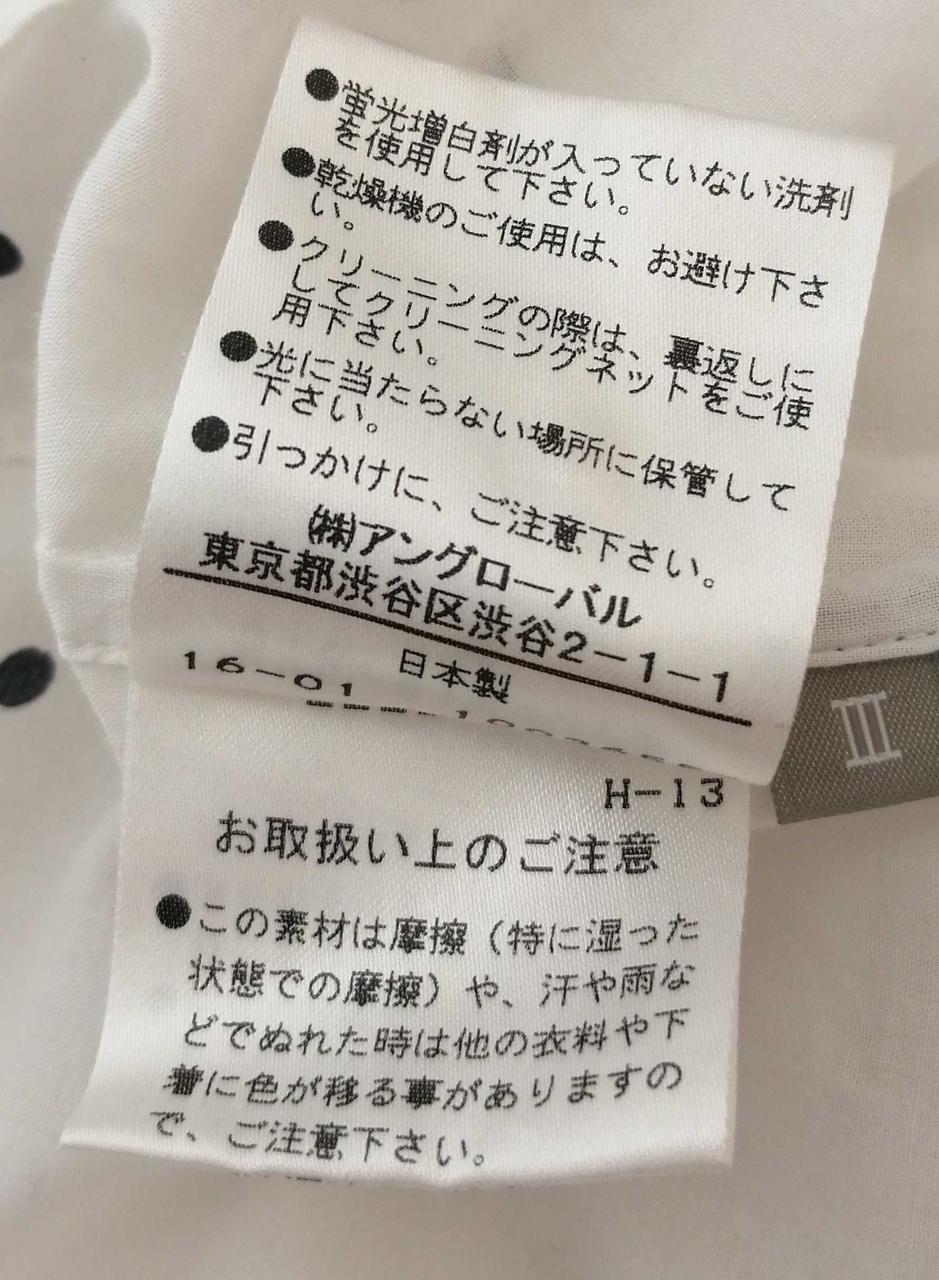 ●蛍光増白剤が入っていない洗剤
を使用して下さい。
●乾燥機のご使用は、お避け下さ
い。
●クリーニングの際は、裏返しに
してクリーニングネットをご使
用下さい。
●光に当たらない場所に保管して
下さい。
●引っかけに、ご注意下さい。
㈱アングローバル
東京都渋谷区渋谷2-1-1
日本製
16-01
III
H-13
お取扱い上のご注意
●この素材は摩擦(特に湿った
状態での摩擦)や、汗や雨な
どでぬれた時は他の衣料や下
着に色が移る事がありますの
で、ご注意下さい。